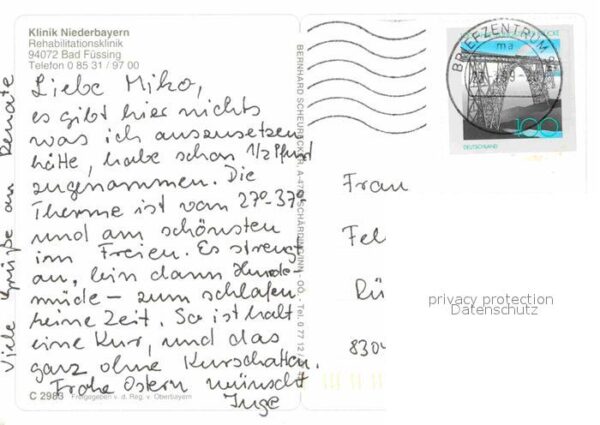 Klinik Niederbayern
Rehabilitationsklinik
94072 Bad Füssing
Telefon 0 85 31 / 97 00
Liebe Miko,
es gibt hier nichts
was ich auszusetzen
hätte, habe schon 1/2 Pfund
zugenommen. Die
Therme ist von 27°-37°
und am schönsten
im Freien. Es strengt
an, bin dann Hunde-
müde – zum schlafen
keine Zeit. So ist halt
eine Kur, und das
ganz ohne Kurschatten.
Frohe Ostern wünscht
Inge
Viele Grüße an Renate
C 2983 Freigegeben v. d. Reg. v. Oberbayern
BERNHARD SCHEURECKER, SCHÄRDING/INN - OÖ. - Tel. 0 77 12 /
BRIEFZENTRUM
ma
100
DEUTSCHLAND
Frau
Fel
Rü
8304
privacy protection
Datenschutz